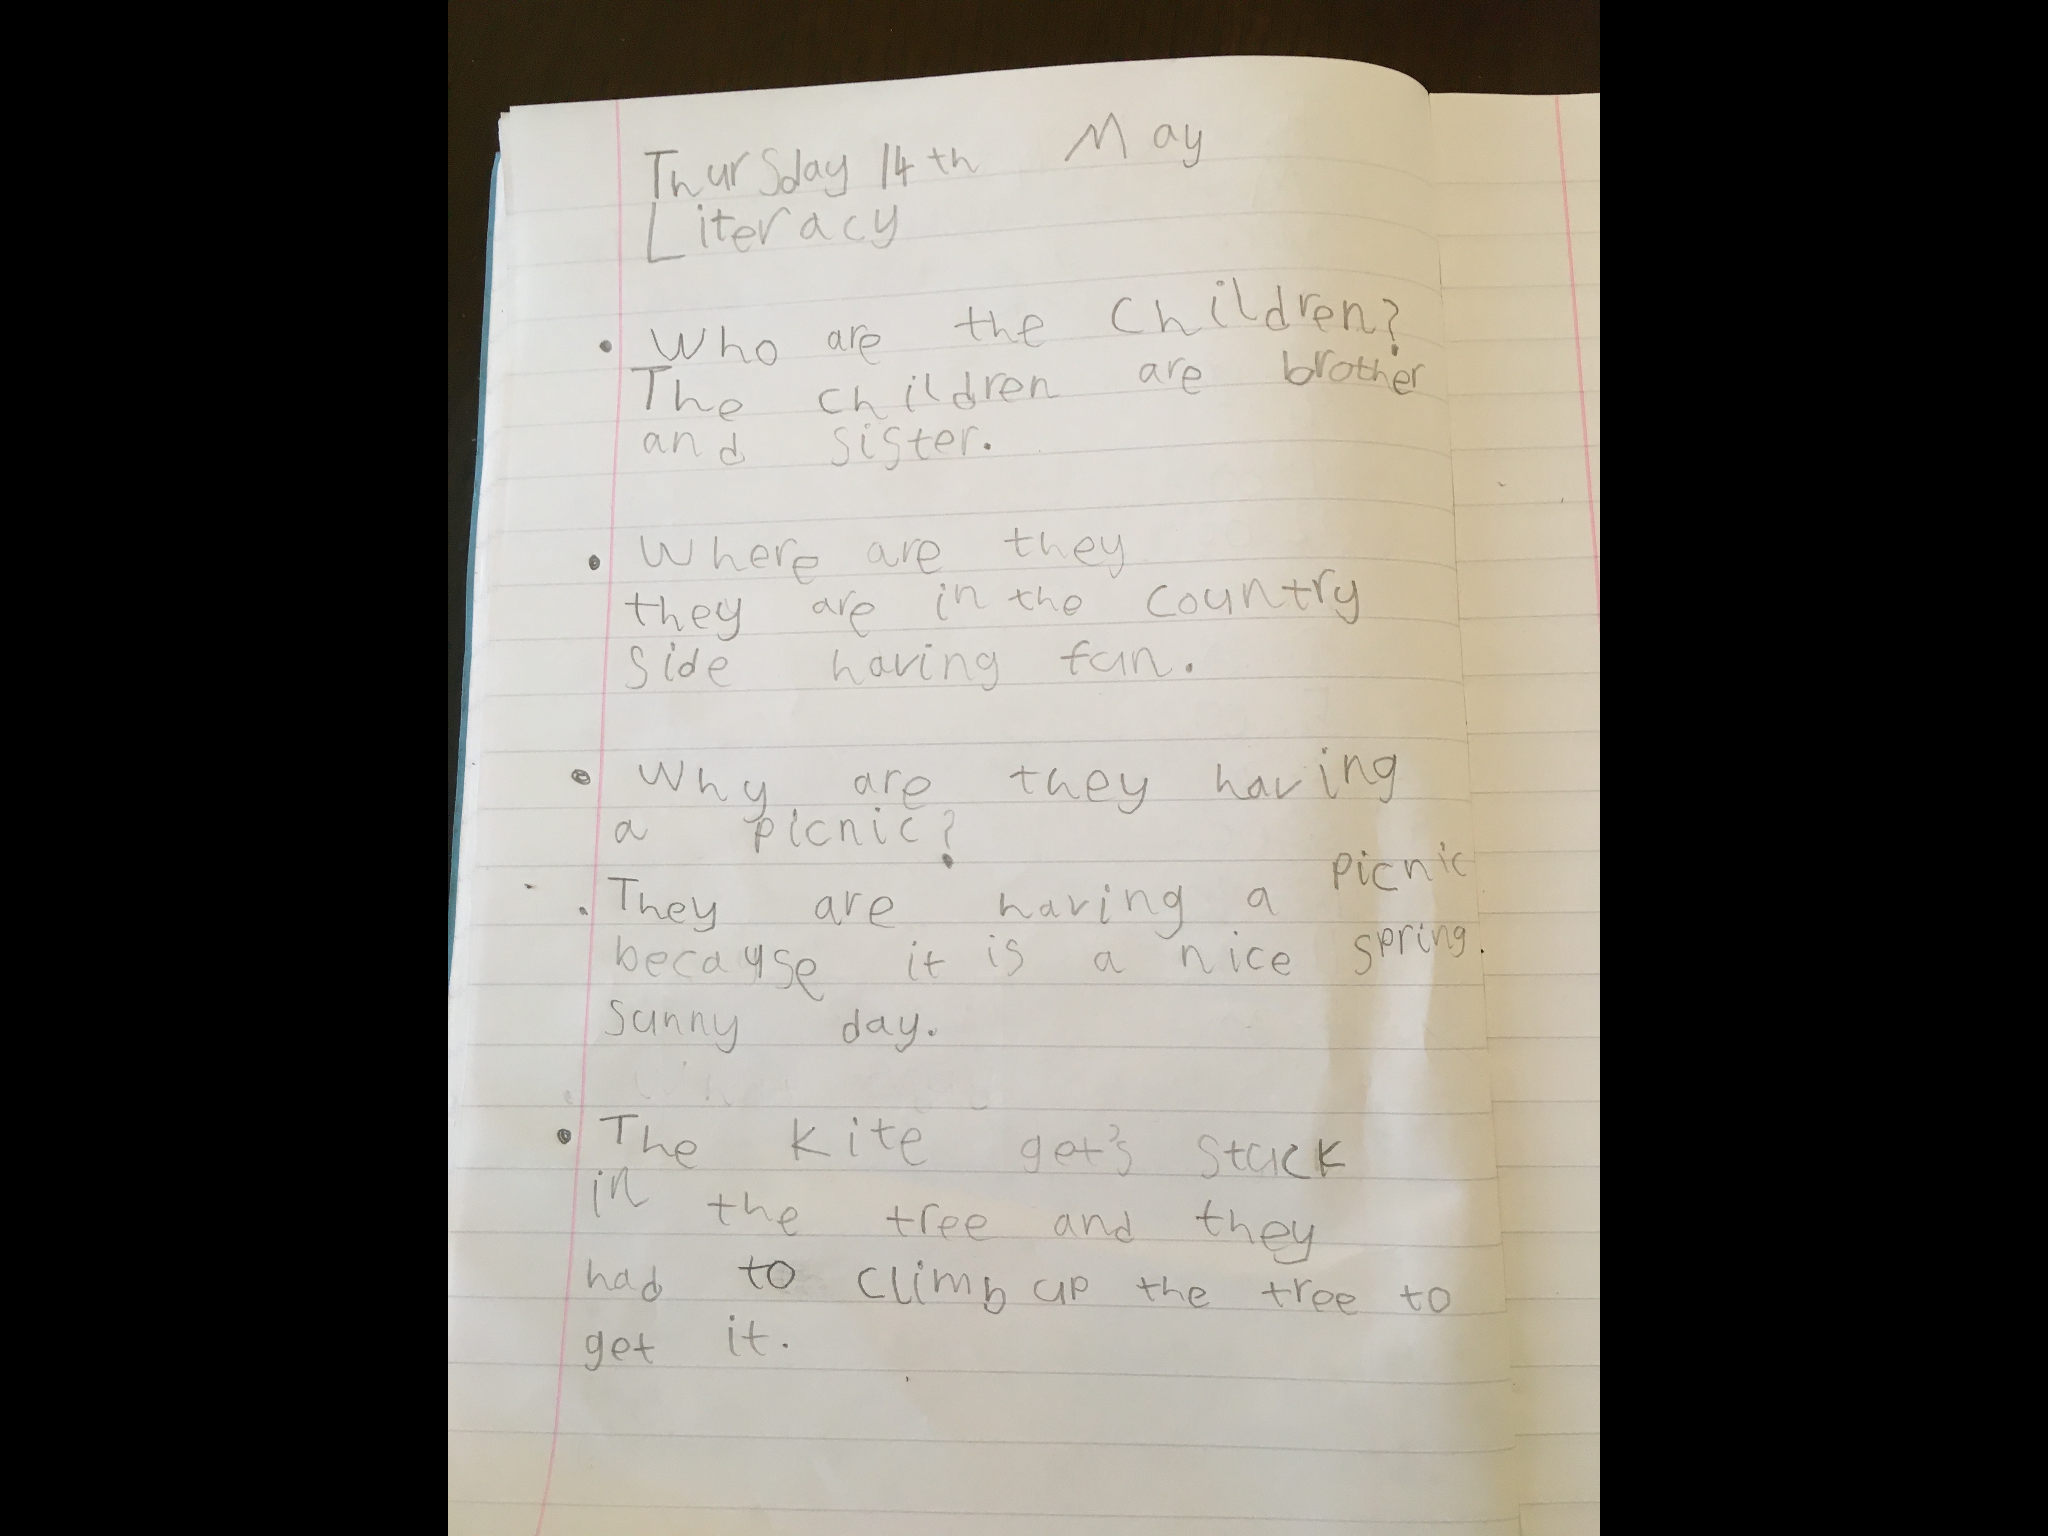 Thursday 14th May
Literacy
• Who are the children?
The children are brother
and sister.
• Where are they
they are in the country
side having fun.
• Why are they having
a picnic?
. They are having a picnic
because it is a nice spring.
sunny day.
• The kite get's stuck
in the tree and they
had to climb up the tree to
get it.